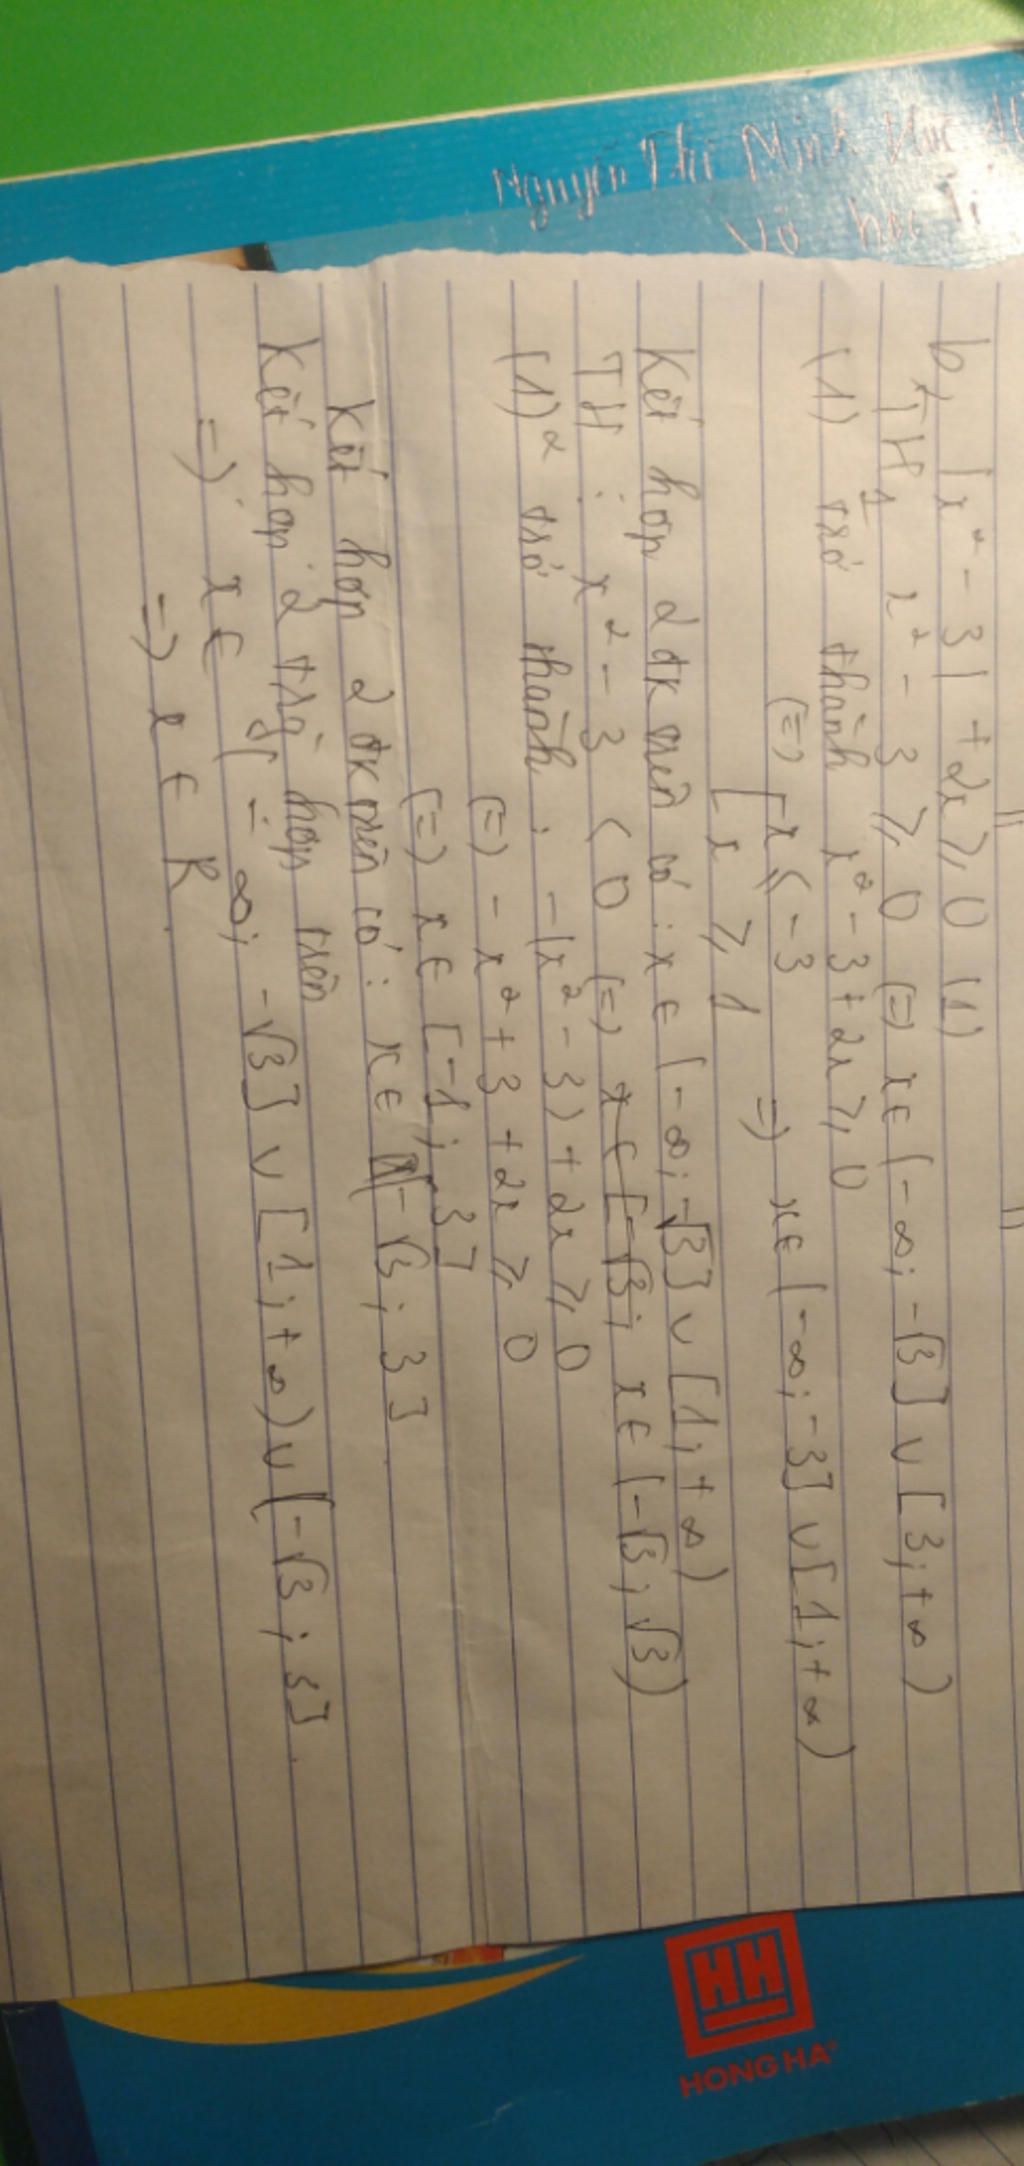 Nguyễn Thị Minh
Vở
b, |x² - 3| + 2x ≥ 0 (1)
TH1 x² - 3 ≥ 0 (=) x ∈ (-∞; -√3] ∪ [3; +∞)
(1) trở thành x² - 3 + 2x ≥ 0
(=) [x ≤ -3 => x ∈ (-∞; -3] ∪ [1; +∞)
[x ≥ 1
Kết hợp 2 đk trên có: x ∈ (-∞; -√3] ∪ [1; +∞)
TH2: x² - 3 < 0 (=) x ∈ (-√3; √3)
(1) trở thành: -(x² - 3) + 2x ≥ 0
(=) -x² + 3 + 2x ≥ 0
(=) x ∈ [-1; 3]
Kết hợp 2 đk trên có: x ∈ (-√3; 3]
Kết hợp 2 trg hợp trên
=> x ∈ (-∞; -√3] ∪ [1; +∞) ∪ (-√3; 3]
=> x ∈ R.
HH
HONG HA